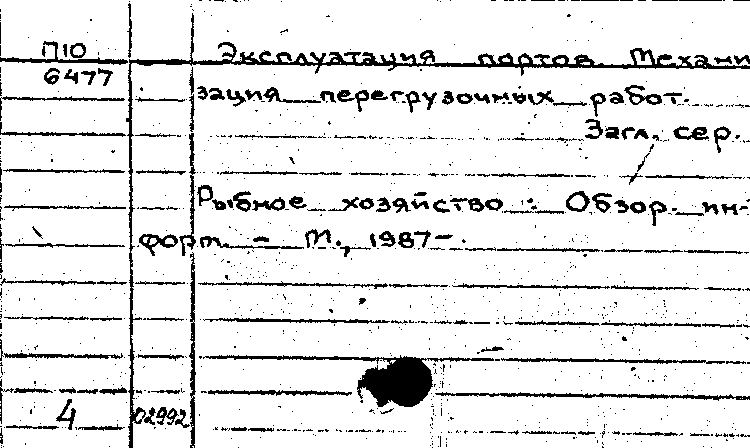 П10
6477
Эксплуатация портов. Механи
зация перегрузочных работ.
Загл. сер.
Рыбное хозяйство : Обзор. ин-
форм. – М., 1987–.
4
02992